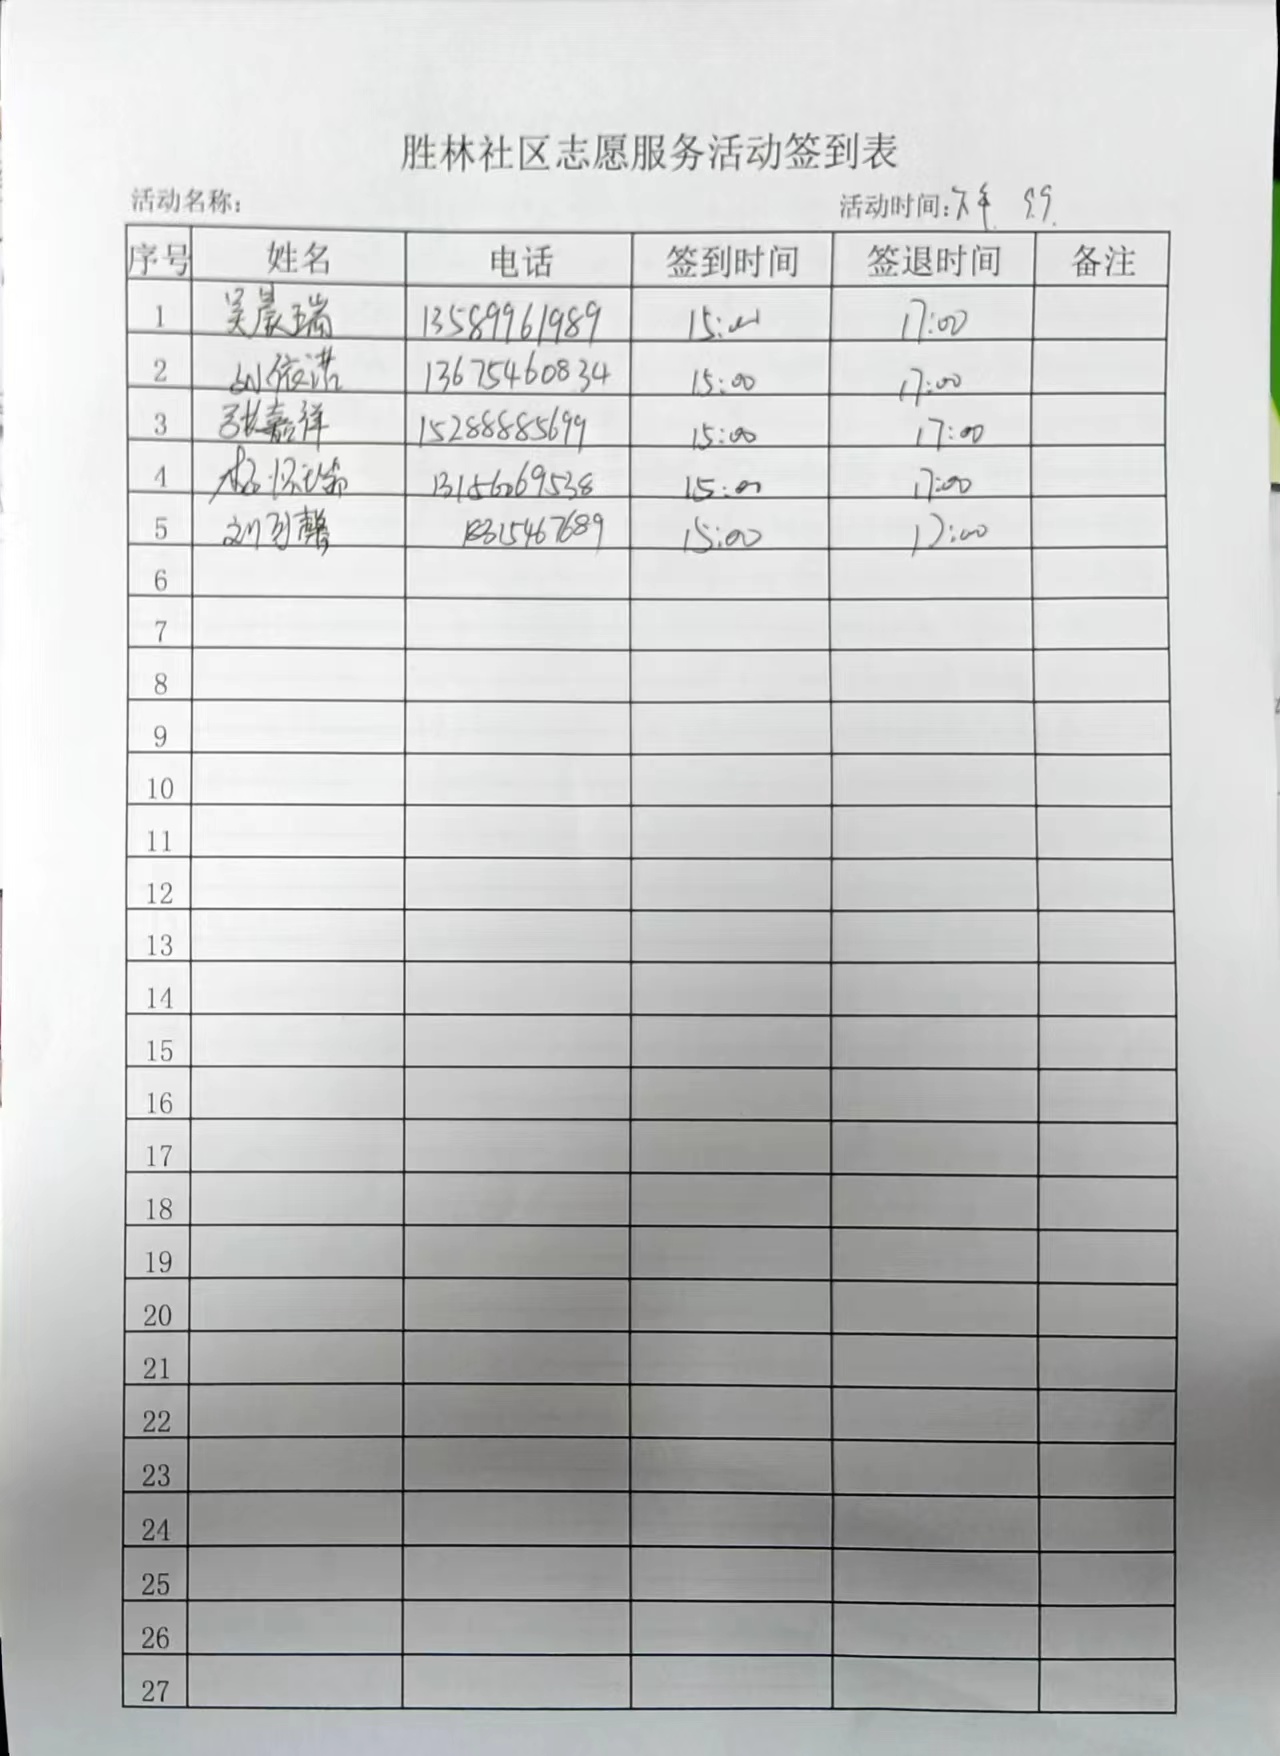 胜林社区志愿服务活动签到表
活动名称: 活动时间: 9.9.
序号 姓名 电话 签到时间 签退时间 备注
1 吴晨瑞 13589961989 15:00 17:00
2 刘依诺 13675460834 15:00 17:00
3 张嘉祥 15288885699 15:00 17:00
4 15:00 17:00
5 15:00 17:00
6
7
8
9
10
11
12
13
14
15
16
17
18
19
20
21
22
23
24
25
26
27